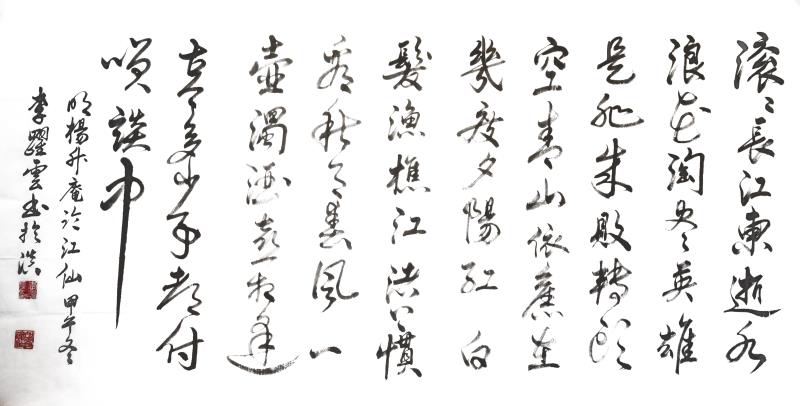 滾〻長江東逝水
浪花淘盡英雄
是非成敗轉頭
空青山依舊在
幾度夕陽紅白
髮漁樵江渚上慣
看秋月春風一
壺濁酒喜相逢
古今多少事都付
咲談中
明楊升庵臨江仙甲午冬
李躍雲書於滇